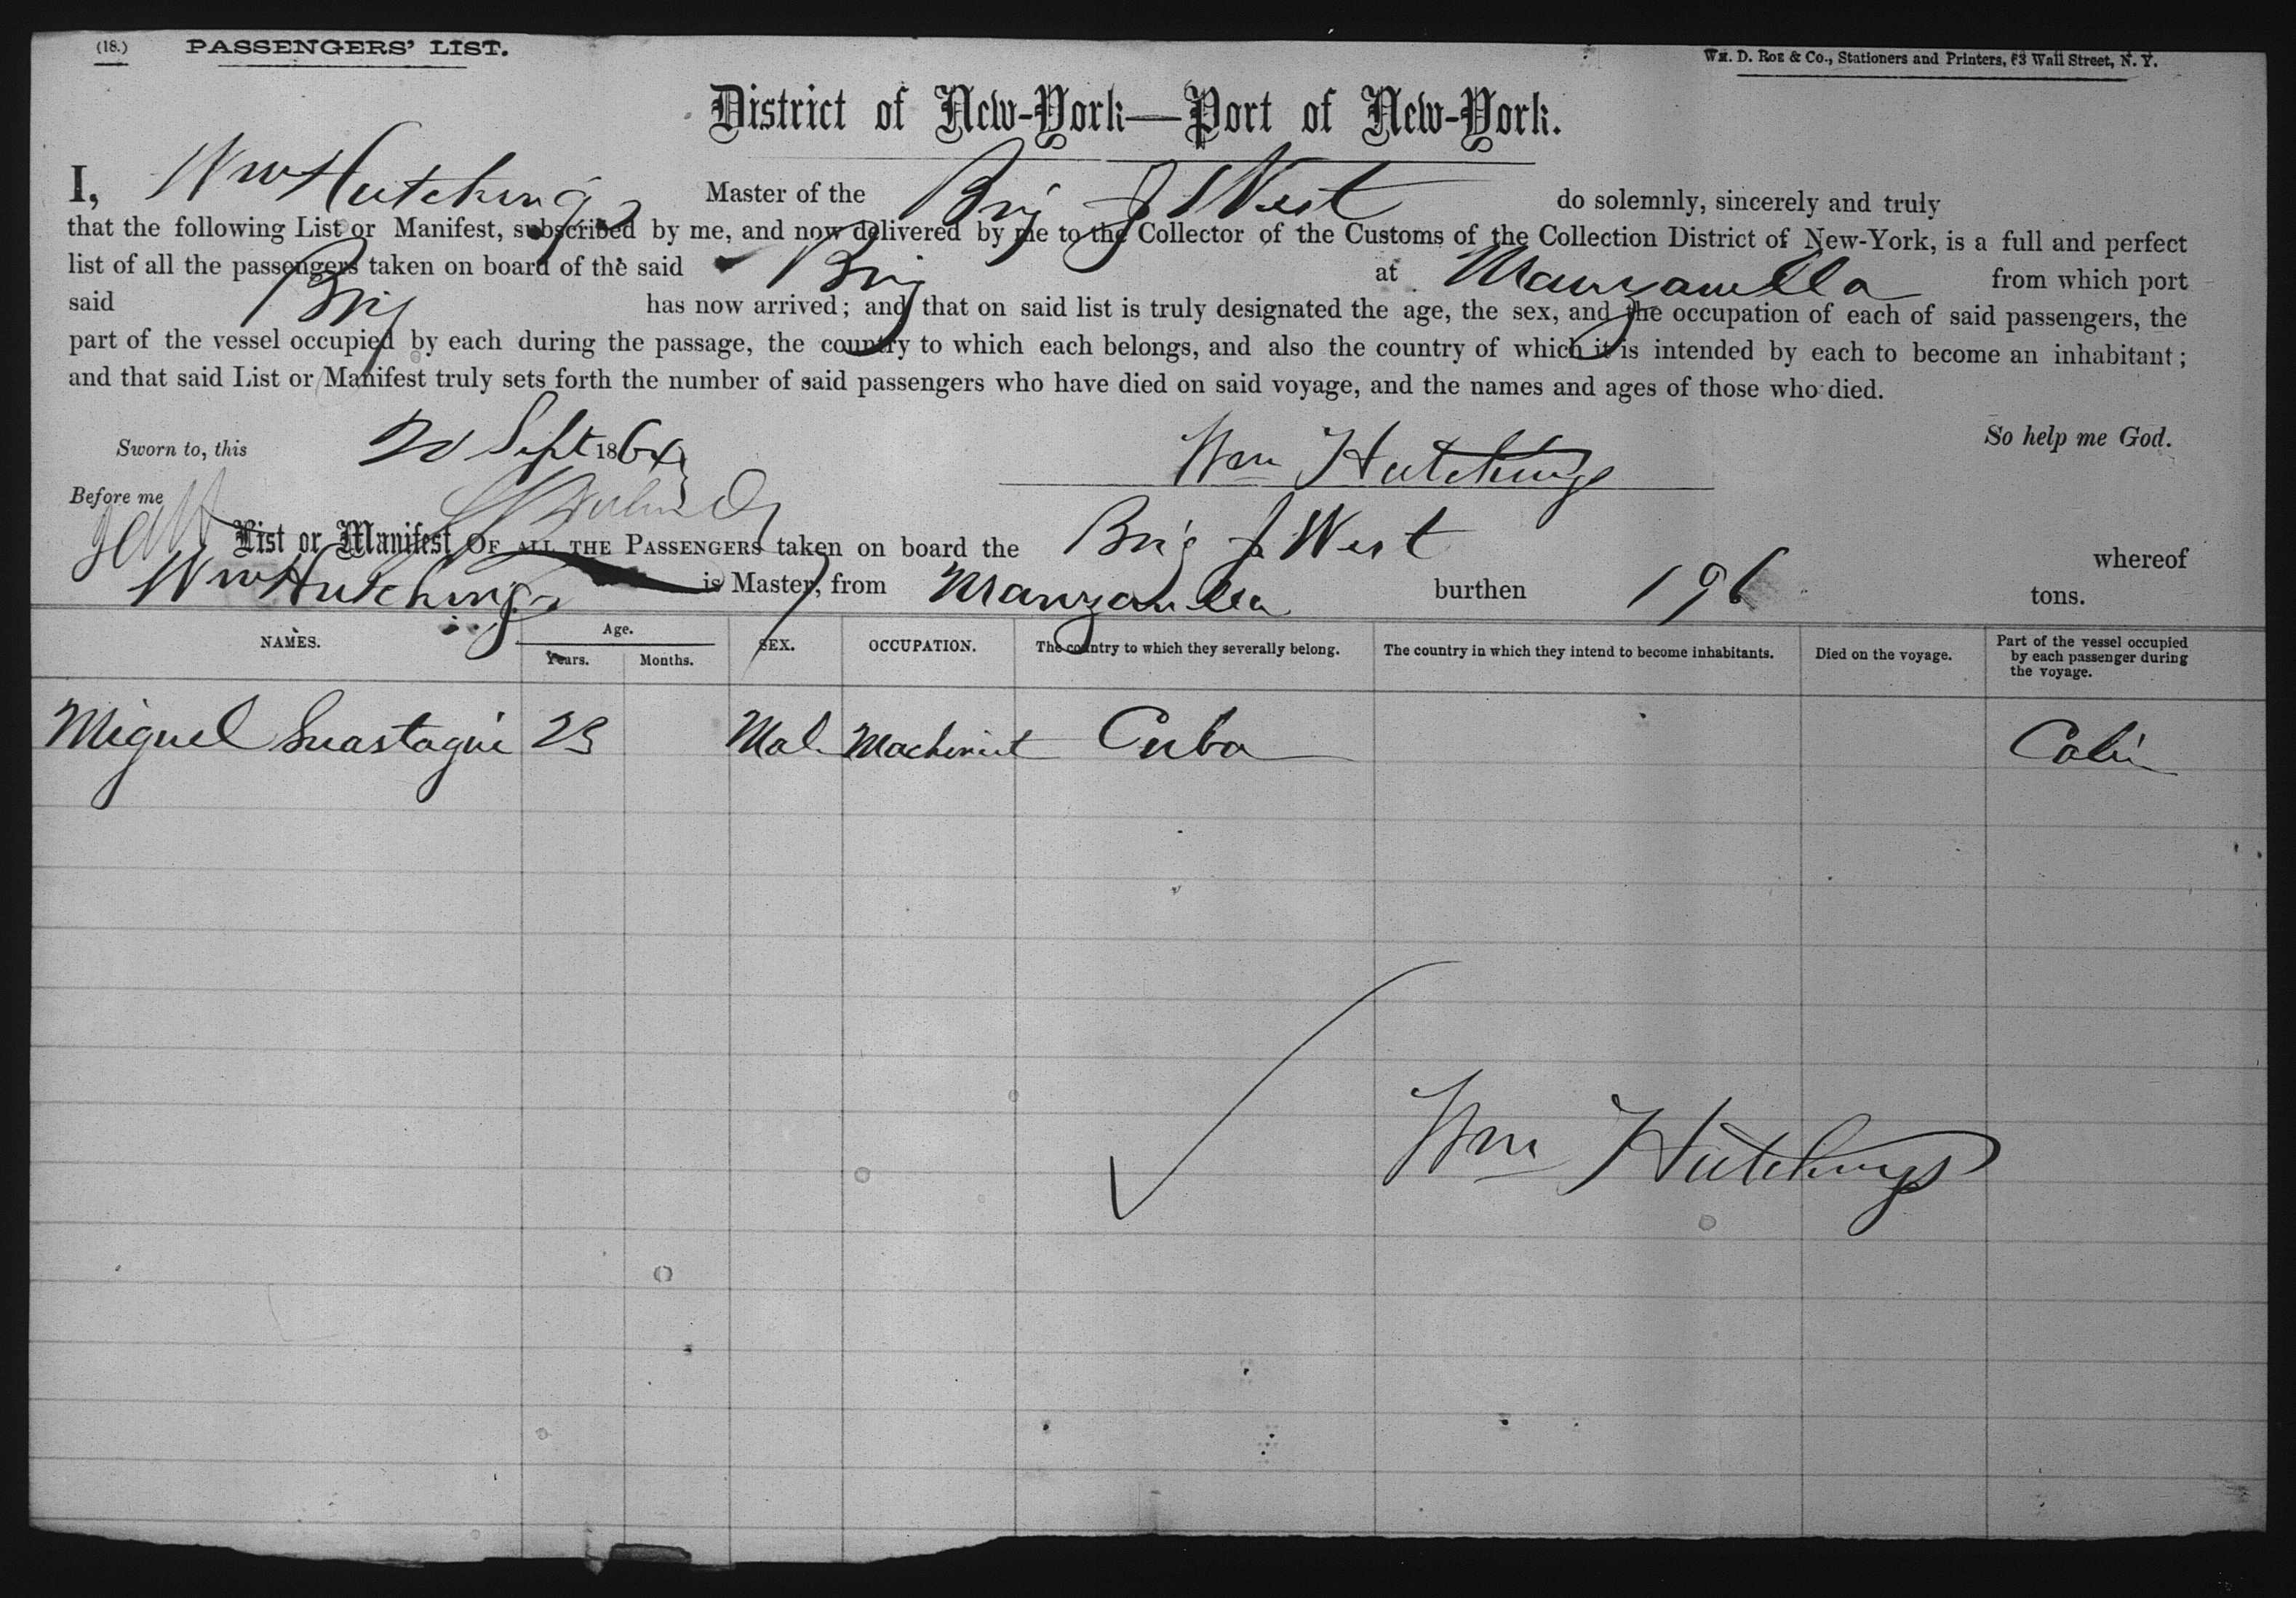 (18.) PASSENGERS' LIST.
WM. D. ROE & CO., Stationers and Printers, 63 Wall Street, N. Y.
District of New-York—Port of New-York.
I, Wm Hutchings Master of the Brig J West do solemnly, sincerely and truly
that the following List or Manifest, subscribed by me, and now delivered by me to the Collector of the Customs of the Collection District of New-York, is a full and perfect
list of all the passengers taken on board of the said Brig at Manzanilla from which port
said Brig has now arrived; and that on said list is truly designated the age, the sex, and the occupation of each of said passengers, the
part of the vessel occupied by each during the passage, the country to which each belongs, and also the country of which it is intended by each to become an inhabitant;
and that said List or Manifest truly sets forth the number of said passengers who have died on said voyage, and the names and ages of those who died.
So help me God.
Sworn to, this 20 Sept 1864 Wm Hutchings
Before me
List or Manifest OF ALL THE PASSENGERS taken on board the Brig J West whereof
Wm Hutchings is Master, from Manzanilla burthen 196 tons.
NAMES. Age. Years. Months. SEX. OCCUPATION. The country to which they severally belong. The country in which they intend to become inhabitants. Died on the voyage. Part of the vessel occupied by each passenger during the voyage.
Miguel Suastagui 23 Mal Machinist Cuba Cabin
Wm Hutchings